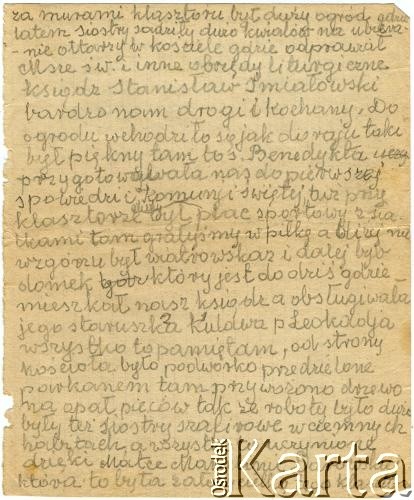 za murami klasztoru był duży ogród gdzie
latem siostry sadziły dużo kwiatów na ubiera-
nie ołtarzy w kosciele gdzie odprawiał
Msze św. i inne obrzędy liturgiczne
Ksiądz Stanisław Śmiałowski
bardzo nam drogi i kochany, Do
ogrodu wchodziło się jak do raju taki
był piękny tam to ś. Benedykta
przygotowywała nas do pierwszej
spowiedzi i komuni świętej tuż przy
klasztorze był plac sportowy z siat-
kami tam graliśmy w piłkę a bliżej na
wzgórzu był wiatrowskaz i dalej był
domek który jest do dziś gdzie
mieszkał nasz ksiądz a obsługiwała
jego staruszka p Leokadja
wszystko to pamiętam, od strony
kościoła było podwórko przedzielone
parkanem tam przywożono drzewo
na opał pieców tak że roboty było dużo
były też siostry szafirowe w ciemnych
habitach, a wszystko
dzięki Matce
która to była
Ośrodek Karta